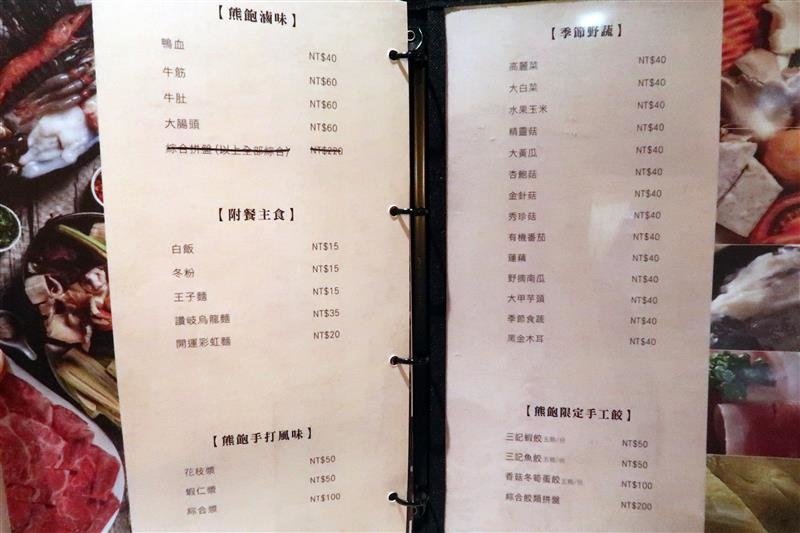 【熊飽滷味】
鴨血 NT$40
牛筋 NT$60
牛肚 NT$60
大腸頭 NT$60
綜合拼盤(以上全部綜合) NT$220
【附餐主食】
白飯 NT$15
冬粉 NT$15
王子麵 NT$15
讚岐烏龍麵 NT$35
開運彩虹麵 NT$20
【熊飽手打風味】
花枝漿 NT$50
蝦仁漿 NT$50
綜合漿 NT$100
【季節野蔬】
高麗菜 NT$40
大白菜 NT$40
水果玉米 NT$40
精靈菇 NT$40
大黃瓜 NT$40
杏鮑菇 NT$40
金針菇 NT$40
秀珍菇 NT$40
有機番茄 NT$40
蓮藕 NT$40
野摘南瓜 NT$40
大甲芋頭 NT$40
季節食蔬 NT$40
黑金木耳 NT$40
【熊飽限定手工餃】
三記蝦餃 五顆/份 NT$50
三記魚餃 五顆/份 NT$50
香菇冬筍蛋餃 五顆/份 NT$100
綜合餃類拼盤 NT$200